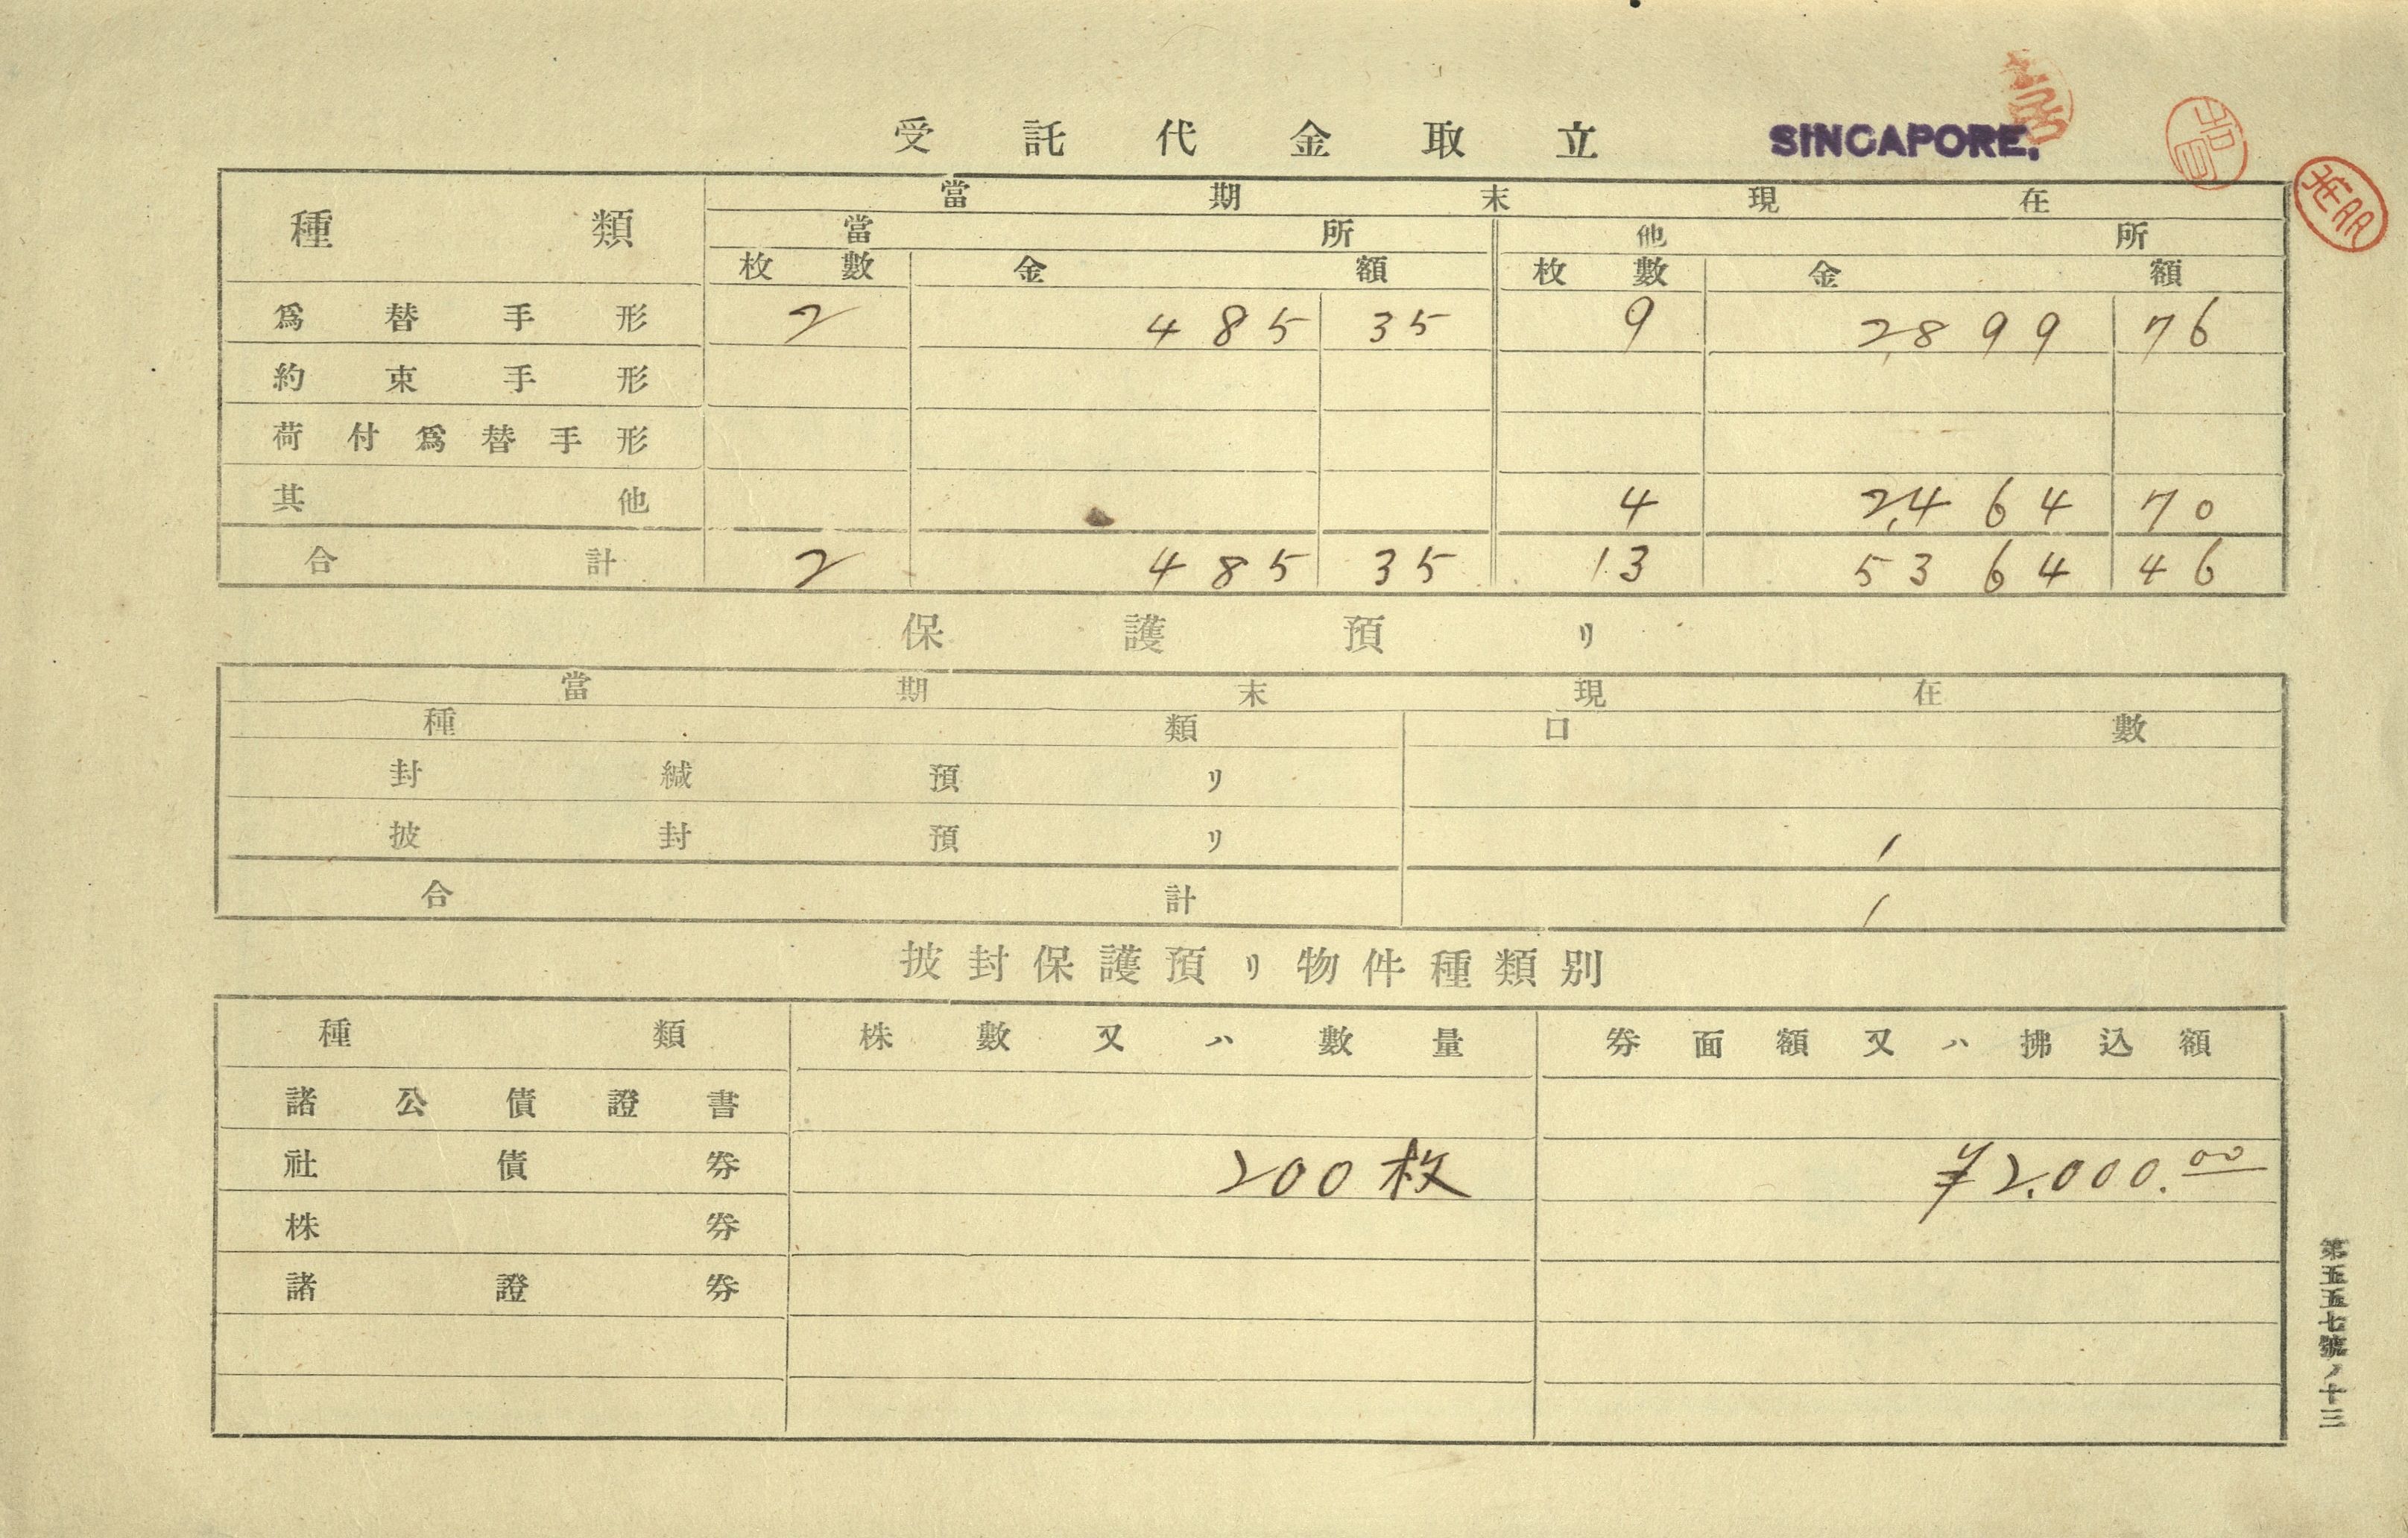 受託代金取立 SINGAPORE.
種類 當期末現在
當所 他所
枚數 金額 枚數 金額
爲替手形 2 485 35 9 2,899 76
約束手形
荷付爲替手形
其他 4 2,464 70
合計 2 485 35 13 5364 46
保護預リ
當期末現在
種類 口數
封緘預リ
披封預リ 1
合計 1
披封保護預リ物件種類別
種類 株數又ハ數量 券面額又ハ拂込額
諸公債證書
社債券 200枚 ¥2,000.00
株券
諸證券
第五五七號ノ十三